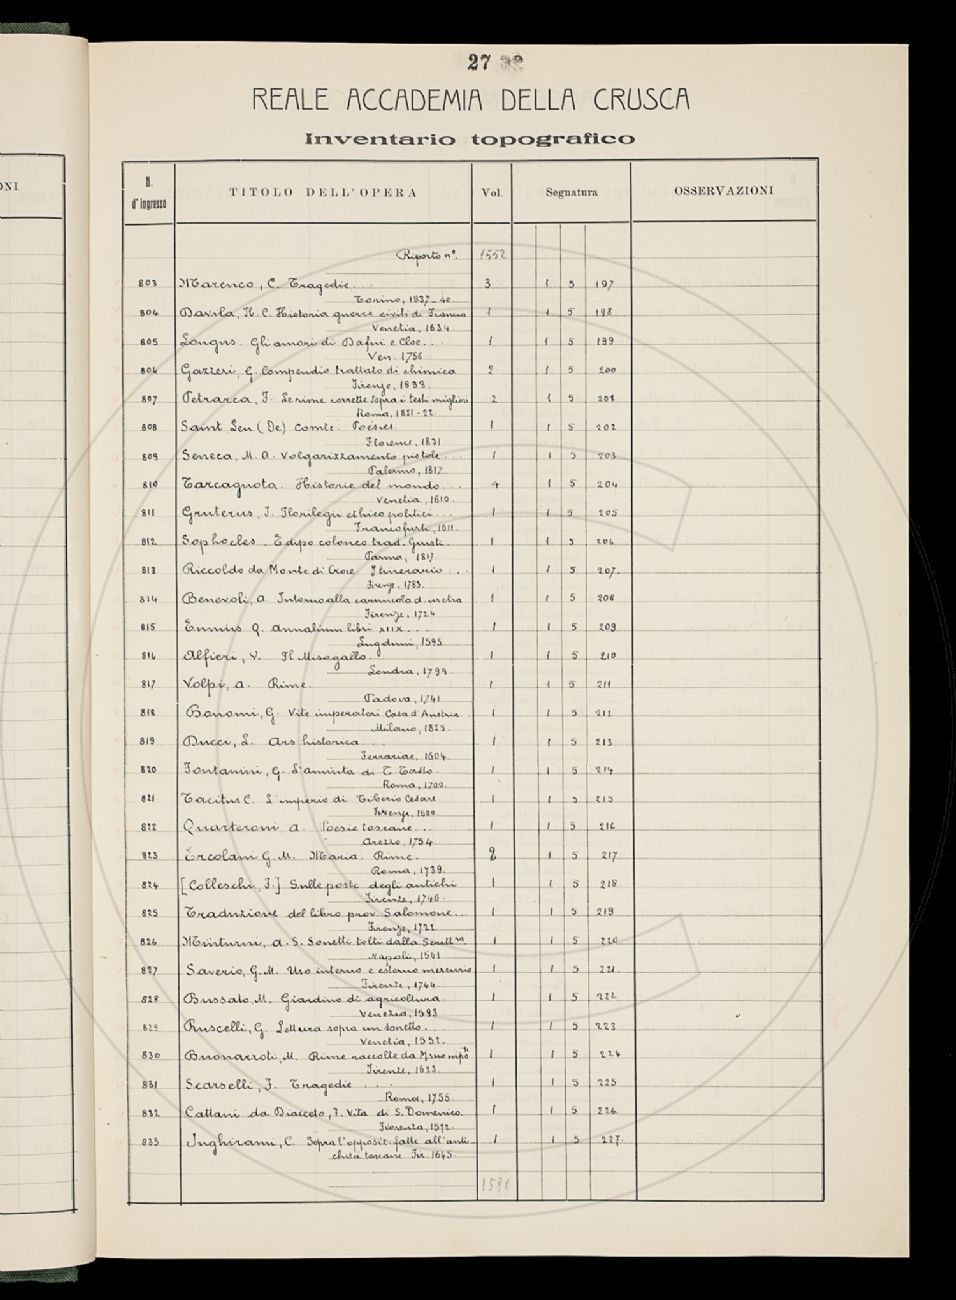 27
REALE ACCADEMIA DELLA CRUSCA
Inventario topografico
ONI
N. d'ingresso TITOLO DELL'OPERA Vol. Segnatura OSSERVAZIONI
Riporto nº. 1552
803 Marenco, C. Tragedie ... 3 1 5 197
Torino, 1837-40.
804 Davila, H. C. Historia guerre civili di Francia 1 1 5 198
Venetia, 1634
805 Longus. Gli amori di Dafni e Cloe ... 1 1 5 199
Ven. 1756
806 Gazzeri, G. Compendio trattato di chimica 2 1 5 200
Firenze, 1833.
807 Petrarca, F. Le rime corrette sopra i testi migliori 2 1 5 201
Roma, 1821-22.
808 Saint Leu (De) comte. Poésies. 1 1 5 202
Florence, 1831
809 Seneca, M. A. Volgarizzamento pistole .... 1 1 5 203
Palermo, 1817
810 Tarcagnota. Historie del mondo ... 4 1 5 204
Venetia, 1610.
811 Gruterus, J. Florilegii ethico politici ... 1 1 5 205
Francofurti, 1611.
812 Sophocles. Edipo coloneo trad. Giusti. 1 1 5 206
Parma, 1817
813 Riccoldo da Monte di Croce Itinerario ... 1 1 5 207.
Firenze, 1793.
814 Benevoli, A. Intorno alla caruncola d. uretra 1 1 5 208
Firenze, 1724
815 Ennius Q. Annalium libri XIIX ... 1 1 5 209
Lugduni, 1595
816 Alfieri, V. Il Misogallo. 1 1 5 210
Londra, 1799.
817 Volpi, A. Rime. 1 1 5 211
Padova, 1741
818 Bonomi, G. Vite imperatori Casa d'Austria. 1 1 5 212
Milano, 1825.
819 Ducci, L. Ars historica ... 1 1 5 213
Ferrariae, 1604.
820 Fontanini, G. L'aminta di T. Tasso. 1 1 5 214
Roma, 1700.
821 Tacitus C. L'imperio di Tiberio Cesare 1 1 5 215
Firenze, 1600
822 Quarteroni, A. Poesie toscane ... 1 1 5 216
Arezzo, 1754.
823 Ercolani G. M. Maria. Rime. 2 1 5 217
Roma, 1739.
824 [Colleschi, F.] Sulle poste degli antichi 1 1 5 218
Firenze, 1746.
825 Traduzione del libro prov. Salomone ... 1 1 5 219
Firenze, 1722
826 Minturni, A. S. Sonetti tolti dalla Scritt.ra 1 1 5 220
Napoli, 1561
827 Saverio, G. M. Uso interno e esterno mercurio 1 1 5 221
Firenze, 1744
828 Bussato, M. Giardino di agricoltura. 1 1 5 222
Venezia, 1593
829 Ruscelli, G. Lettura sopra un sonetto ... 1 1 5 223
Venetia, 1552.
830 Buonarroti, M. Rime raccolte da 1 1 5 224
Firenze, 1623.
831 Scarselli, F. Tragedie .... 1 1 5 225
Roma, 1755.
832 Cattani da Diacceto, F. Vita di S. Domenico. 1 1 5 226
Fiorenza, 1572.
833 Inghirami, C. Sopra l'opposiz. fatte all'anti- 1 1 5 227.
chità toscane Fir. 1645.
1591